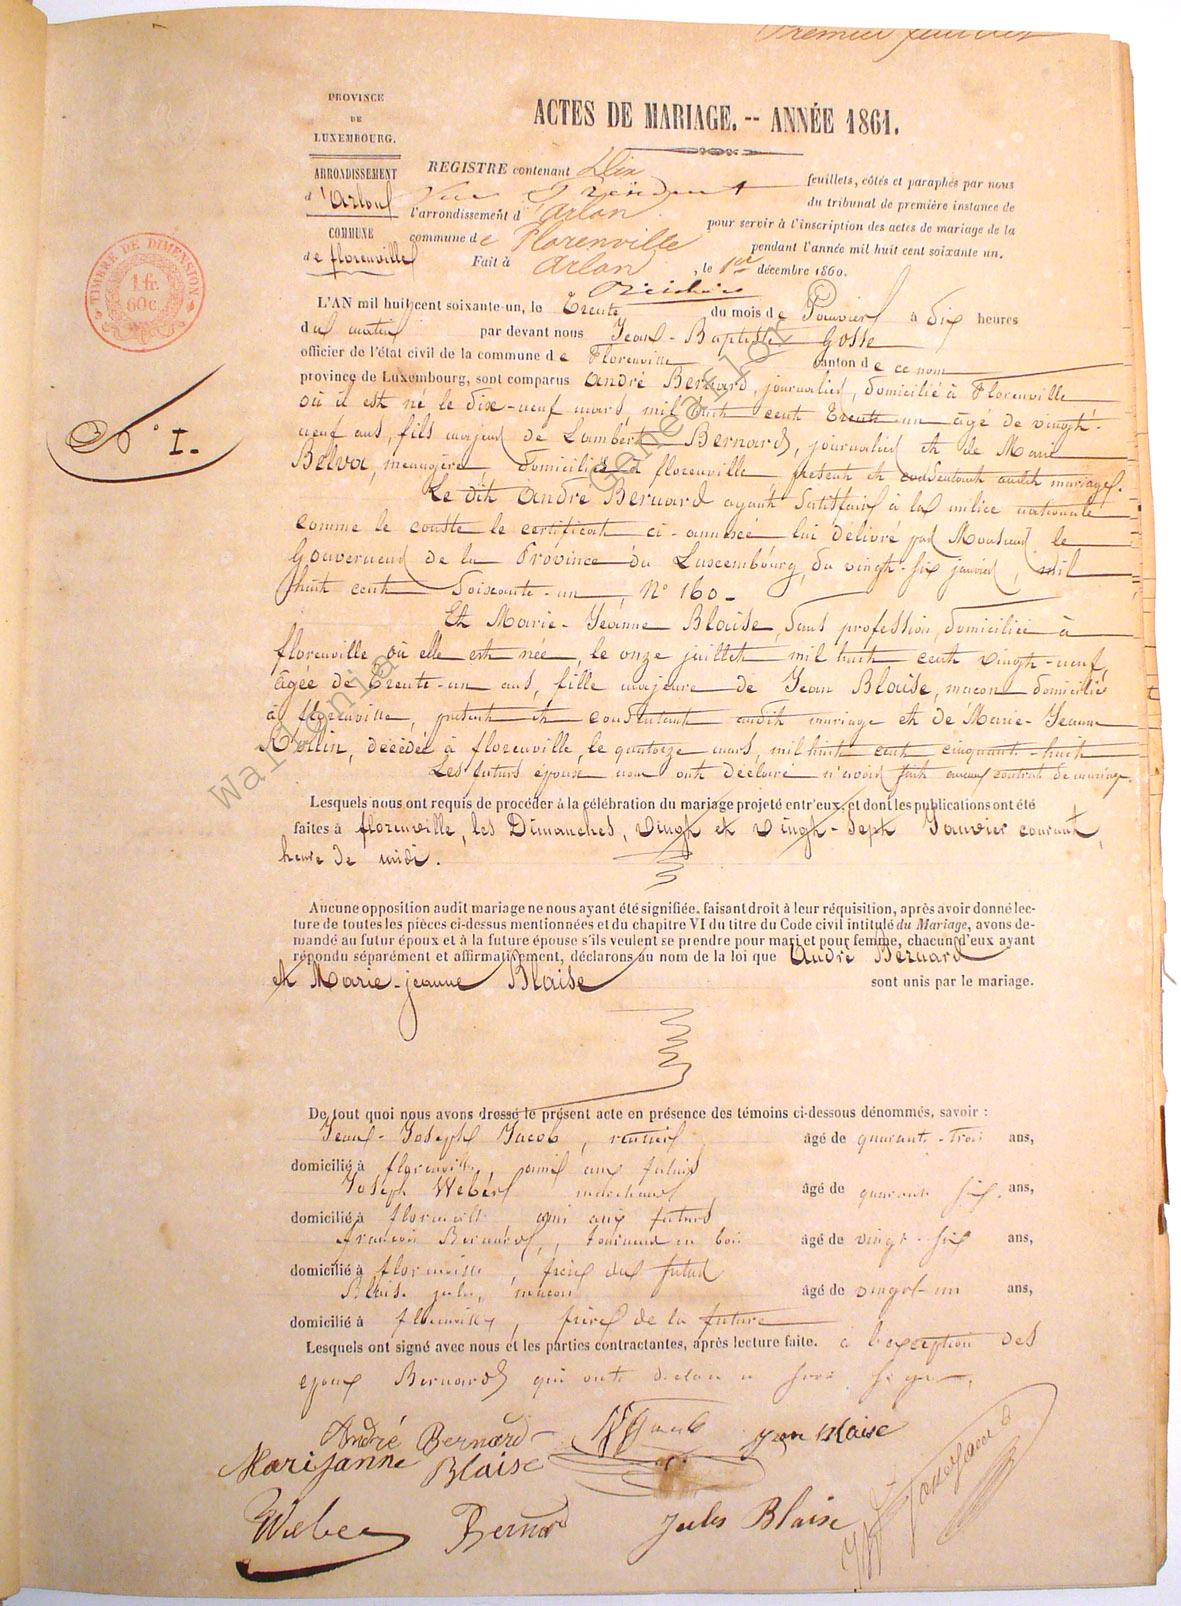 Premier feuillet
PROVINCE
DE
LUXEMBOURG.
ARRONDISSEMENT
d'Arlon
COMMUNE
de florenville
TIMBRE DE DIMENSION
1 fr.
60 c.
ACTES DE MARIAGE. -- ANNÉE 1861.
REGISTRE contenant Dix feuillets, côtés et paraphés par nous
Vice Président du tribunal de première instance de
l'arrondissement d'Arlon pour servir à l'inscription des actes de mariage de la
commune de Florenville pendant l'année mil huit cent soixante un.
Fait à Arlon, le 1er décembre 1860.
L'AN mil huit cent soixante-un, le Trente du mois de Janvier à dix heures
du matin par devant nous Jean-Baptiste Gosse
officier de l'état civil de la commune de Florenville canton de ce nom
province de Luxembourg, sont comparus André Bernard, journalier, domicilié à Florenville
où il est né le dix-neuf mars mil huit cent trente-un âgé de vingt-
neuf ans, fils majeur de Lambert Bernard, journalier et de Marie
Belva, menagère, domiciliés à florenville, présents et consentants audit mariage.
Le dit André Bernard ayant satisfait à la milice nationale
comme le conste le certificat ci-annexée lui délivré par Monsieur le
Gouverneur de la Province du Luxembourg, du vingt-six janvier, mil
huit cent soixante-un, N° 160-
N° 1.
Et Marie-Jeanne Blaise, sans profession, domiciliée à
florenville où elle est née, le onze juillet mil huit cent vingt-neuf,
âgée de trente-un ans, fille majeure de Jean Blaise, maçon domicilié
à florenville, présent et consentant audit mariage et de Marie-Jeanne
Rollin, décédée à florenville, le quatorze mars, mil huit cent cinquante-huit
Les futurs époux nous ont déclaré n'avoir fait aucun contrat de mariage.
Lesquels nous ont requis de procéder à la célébration du mariage projeté entr'eux, et dont les publications ont été
faites à florenville, les Dimanches, vingt et vingt-sept Janvier courant,
heure de midi.
Aucune opposition audit mariage ne nous ayant été signifiée, faisant droit à leur réquisition, après avoir donné lec-
ture de toutes les pièces ci-dessus mentionnées et du chapitre VI du titre du Code civil intitulé du Mariage, avons de-
mandé au futur époux et à la future épouse s'ils veulent se prendre pour mari et pour femme, chacun d'eux ayant
répondu séparément et affirmativement, déclarons au nom de la loi que André Bernard
et Marie-jeanne Blaise sont unis par le mariage.
De tout quoi nous avons dressé le présent acte en présence des témoins ci-dessous dénommés, savoir :
Jean-Joseph Jacob, rentier âgé de quarante-trois ans,
domicilié à florenville, ami aux futurs
Joseph Weber marchand, âgé de quarante six ans,
domicilié à florenville ami aux futurs
françois Bernard, tourneur en bois âgé de vingt-six ans,
domicilié à florenville, frère du futur
Blaise jules, maçon âgé de vingt-un ans,
domicilié à florenville, frère de la future
Lesquels ont signé avec nous et les parties contractantes, après lecture faite. à l'exception des
époux Bernard qui ont déclaré ne savoir signer.
André Bernard Jacob jean Blaise
Marijanne Blaise
Weber Bernard Jules Blaise
Wallonia © Geneanet.org